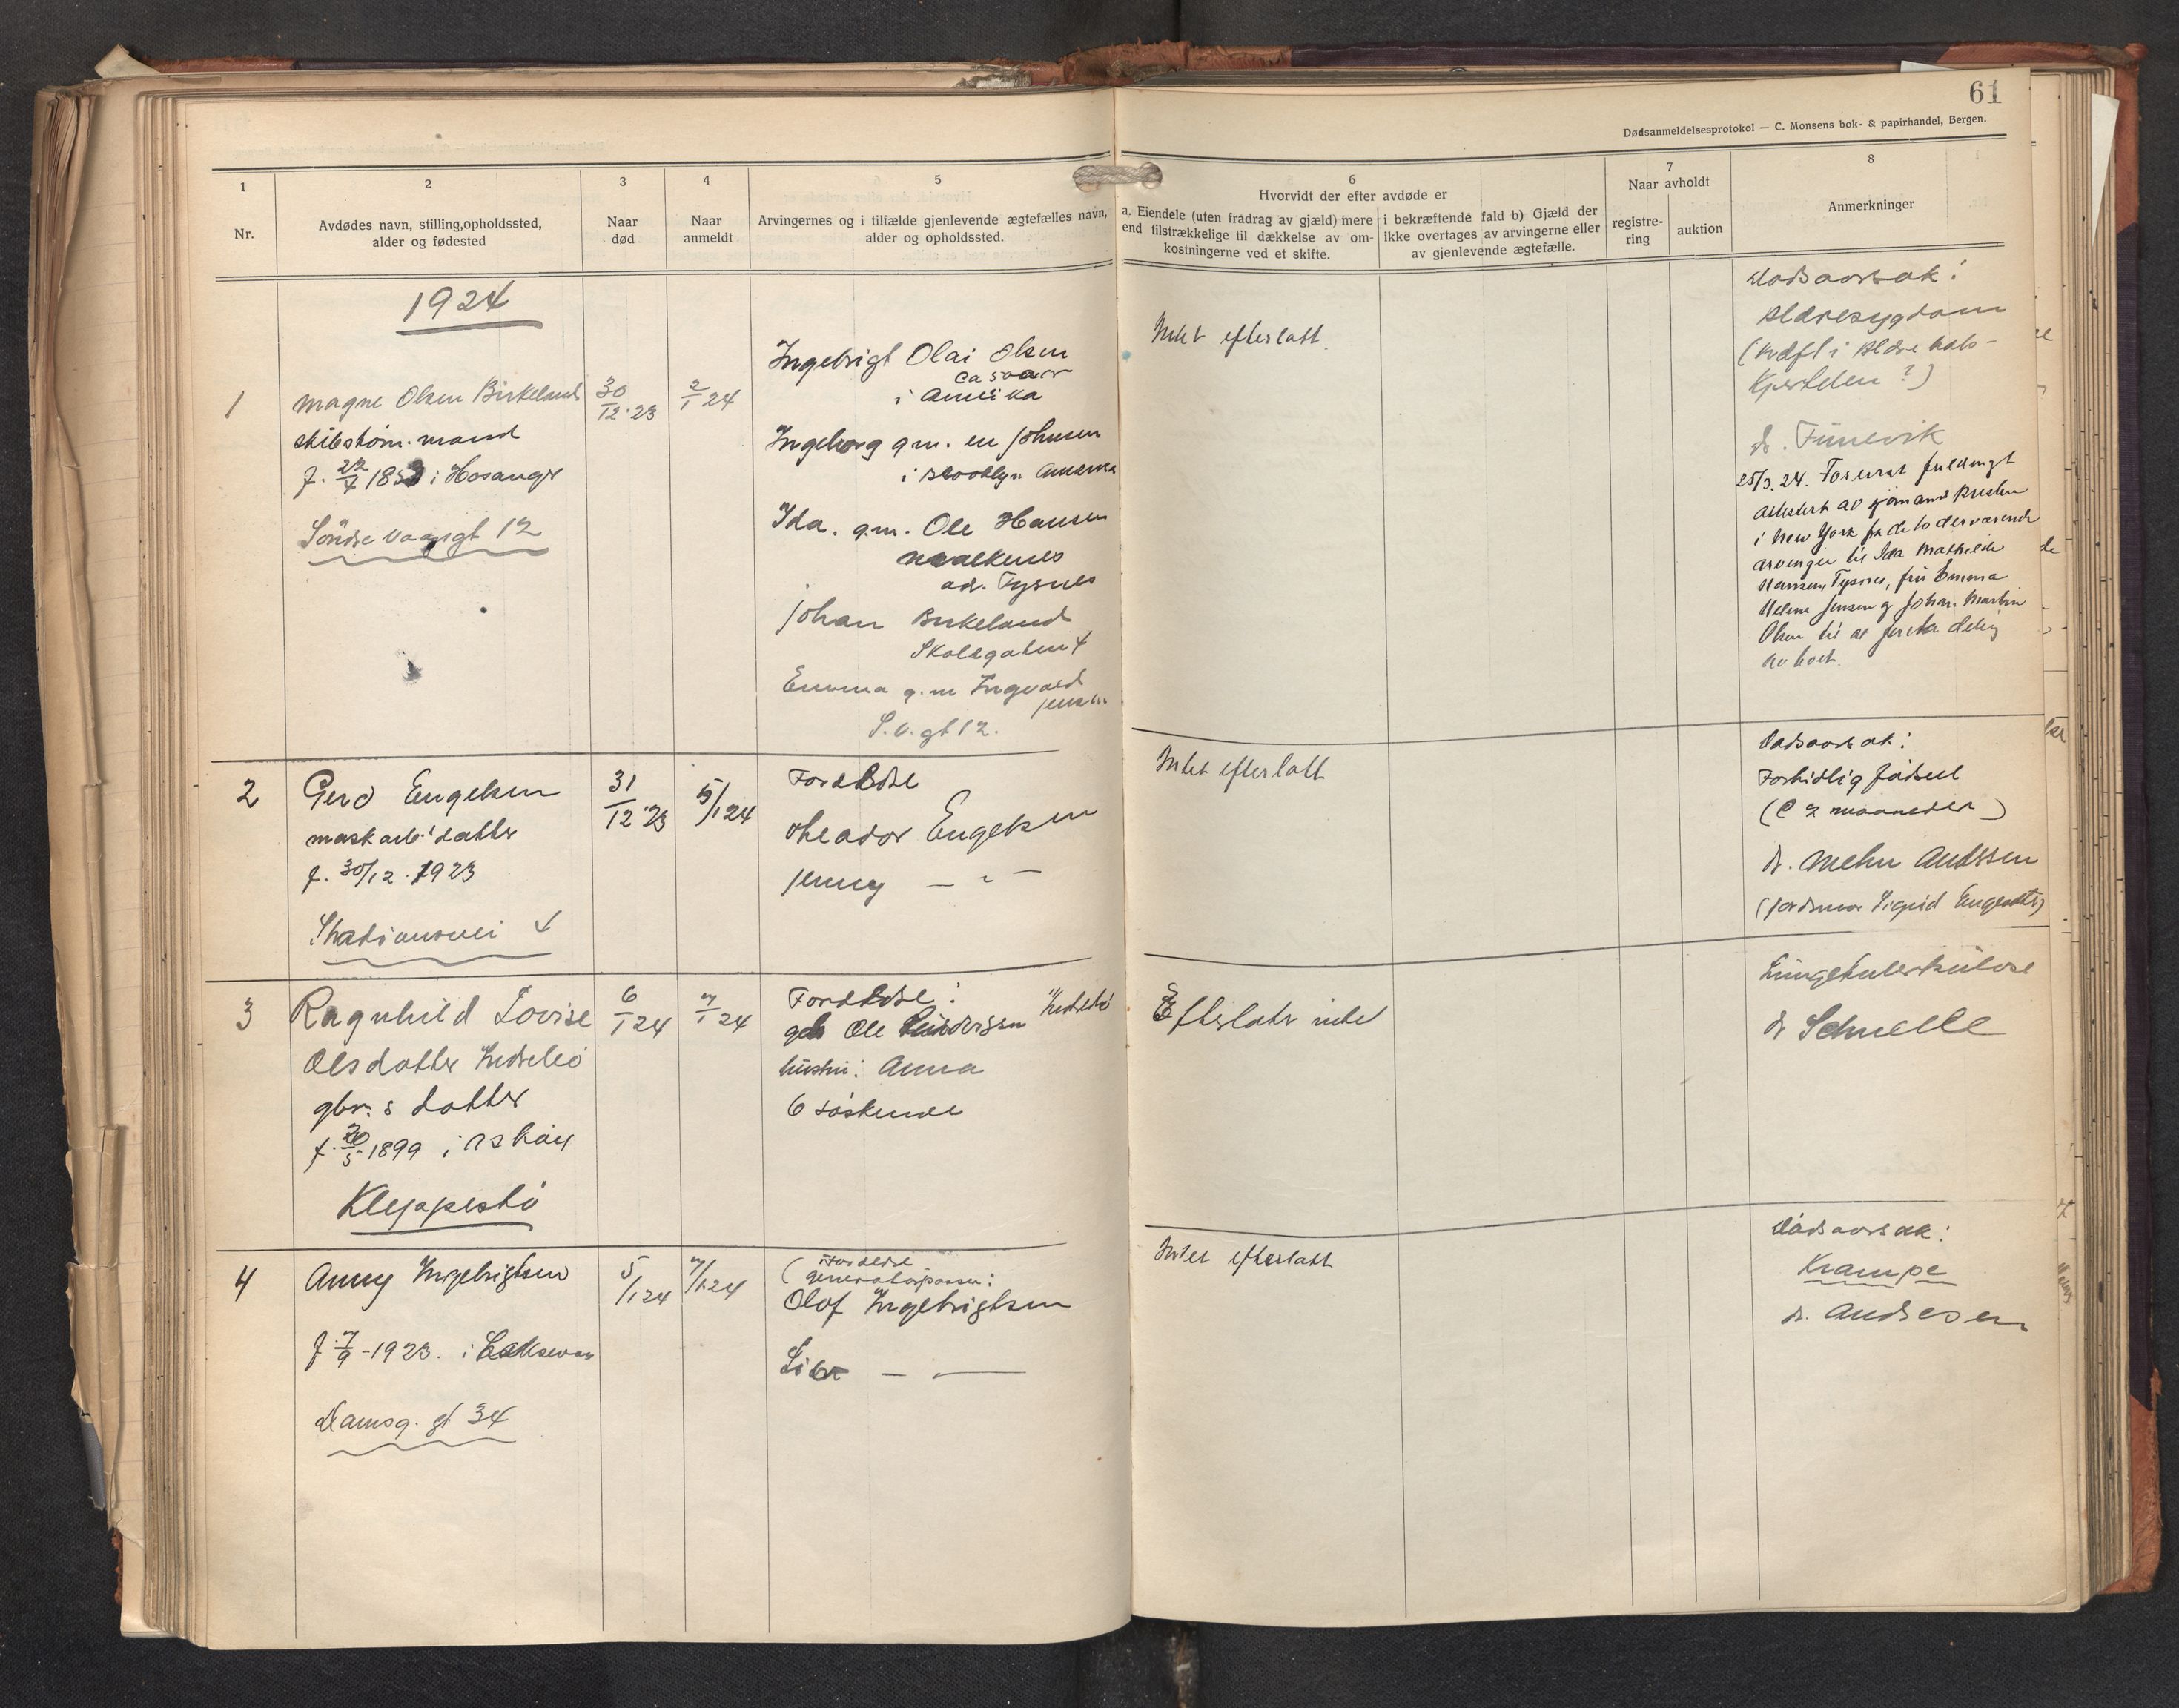 61
Dødsanmeldelsesprotokol — C. Monsens bok- & papirhandel, Bergen.
1
Nr.
2
Avdødes navn, stilling, opholdssted,
alder og fødested
3
Naar
død
4
Naar
anmeldt
5
Arvingernes og i tilfælde gjenlevende ægtefælles navn,
alder og opholdssted.
6
Hvorvidt der efter avdøde er
a. Eiendele (uten fradrag av gjæld) mere
end tilstrækkelige til dækkelse av om-
kostningerne ved et skifte.
i bekræftende fald b) Gjæld der
ikke overtages av arvingerne eller
av gjenlevende ægtefælle.
7
Naar avholdt
registre-
ring
auktion
8
Anmerkninger
1924
1
Magne Olsen Birkeland
skibstøm.mand
f. 22/4 1853 i Hosanger
Søndre Vaagsgt 12
30/12·23
2/1 24
Ingebrigt Olai Olsen
i Amerika
Ingeborg g.m. en Johnsen
i Brooklyn Amerika
Ida. g.m. Ole Hansen
adr. Tysnes
Johan Birkeland
Skolegaten 4
Emma g.m Ingvald
Jensen
S.V.gt 12.
Intet efterlatt.
Dødsaarsak:
Blæresygdom
(kræft i blærehals-
kjertelen?)
dr. Finnevik
25/3.24. Forevist fuldmagt
attestert av sjømandspresten
i New York fra de to derværende
arvinger til Ida Mathilde
Hansen, Tysnes, fru Emma
Helene Jensen og Johan Martin
Olsen til at foreta deling
av boet.
2
Gerd Engelsen
maskarb. datter
f. 30/12·1923
Stadionsvei 4
31/12·23
5/1 24
Forældre
Theador Engelsen
Jenny — " —
Intet efterlatt
Dødsaarsak:
Fortidlig fødsel
(C 7 maaneder)
dr. Mehn Andssen
(jordmor Sigrid
3
Ragnhild Lovise
Olsdatter Indrebø
gbr.s datter
f. 20/5 1899 i Askøy
Kleppestø
6/1 24
7/1 24
Forældre:
gbr Ole Indrebø
hustru: Anna
6 søskende
Efterlater intet
Lungetuberkulose
dr Schnelle
4
Anny Ingebrigtsen
f 7/9-1923. i Laksevaag
Damsg. gt 34
5/1 24
7/1 24
(Forældre
generatorpasser:
Olof Ingebrigtsen
— —
Intet efterlatt
Dødsaarsak:
Krampe
dr. Andresen